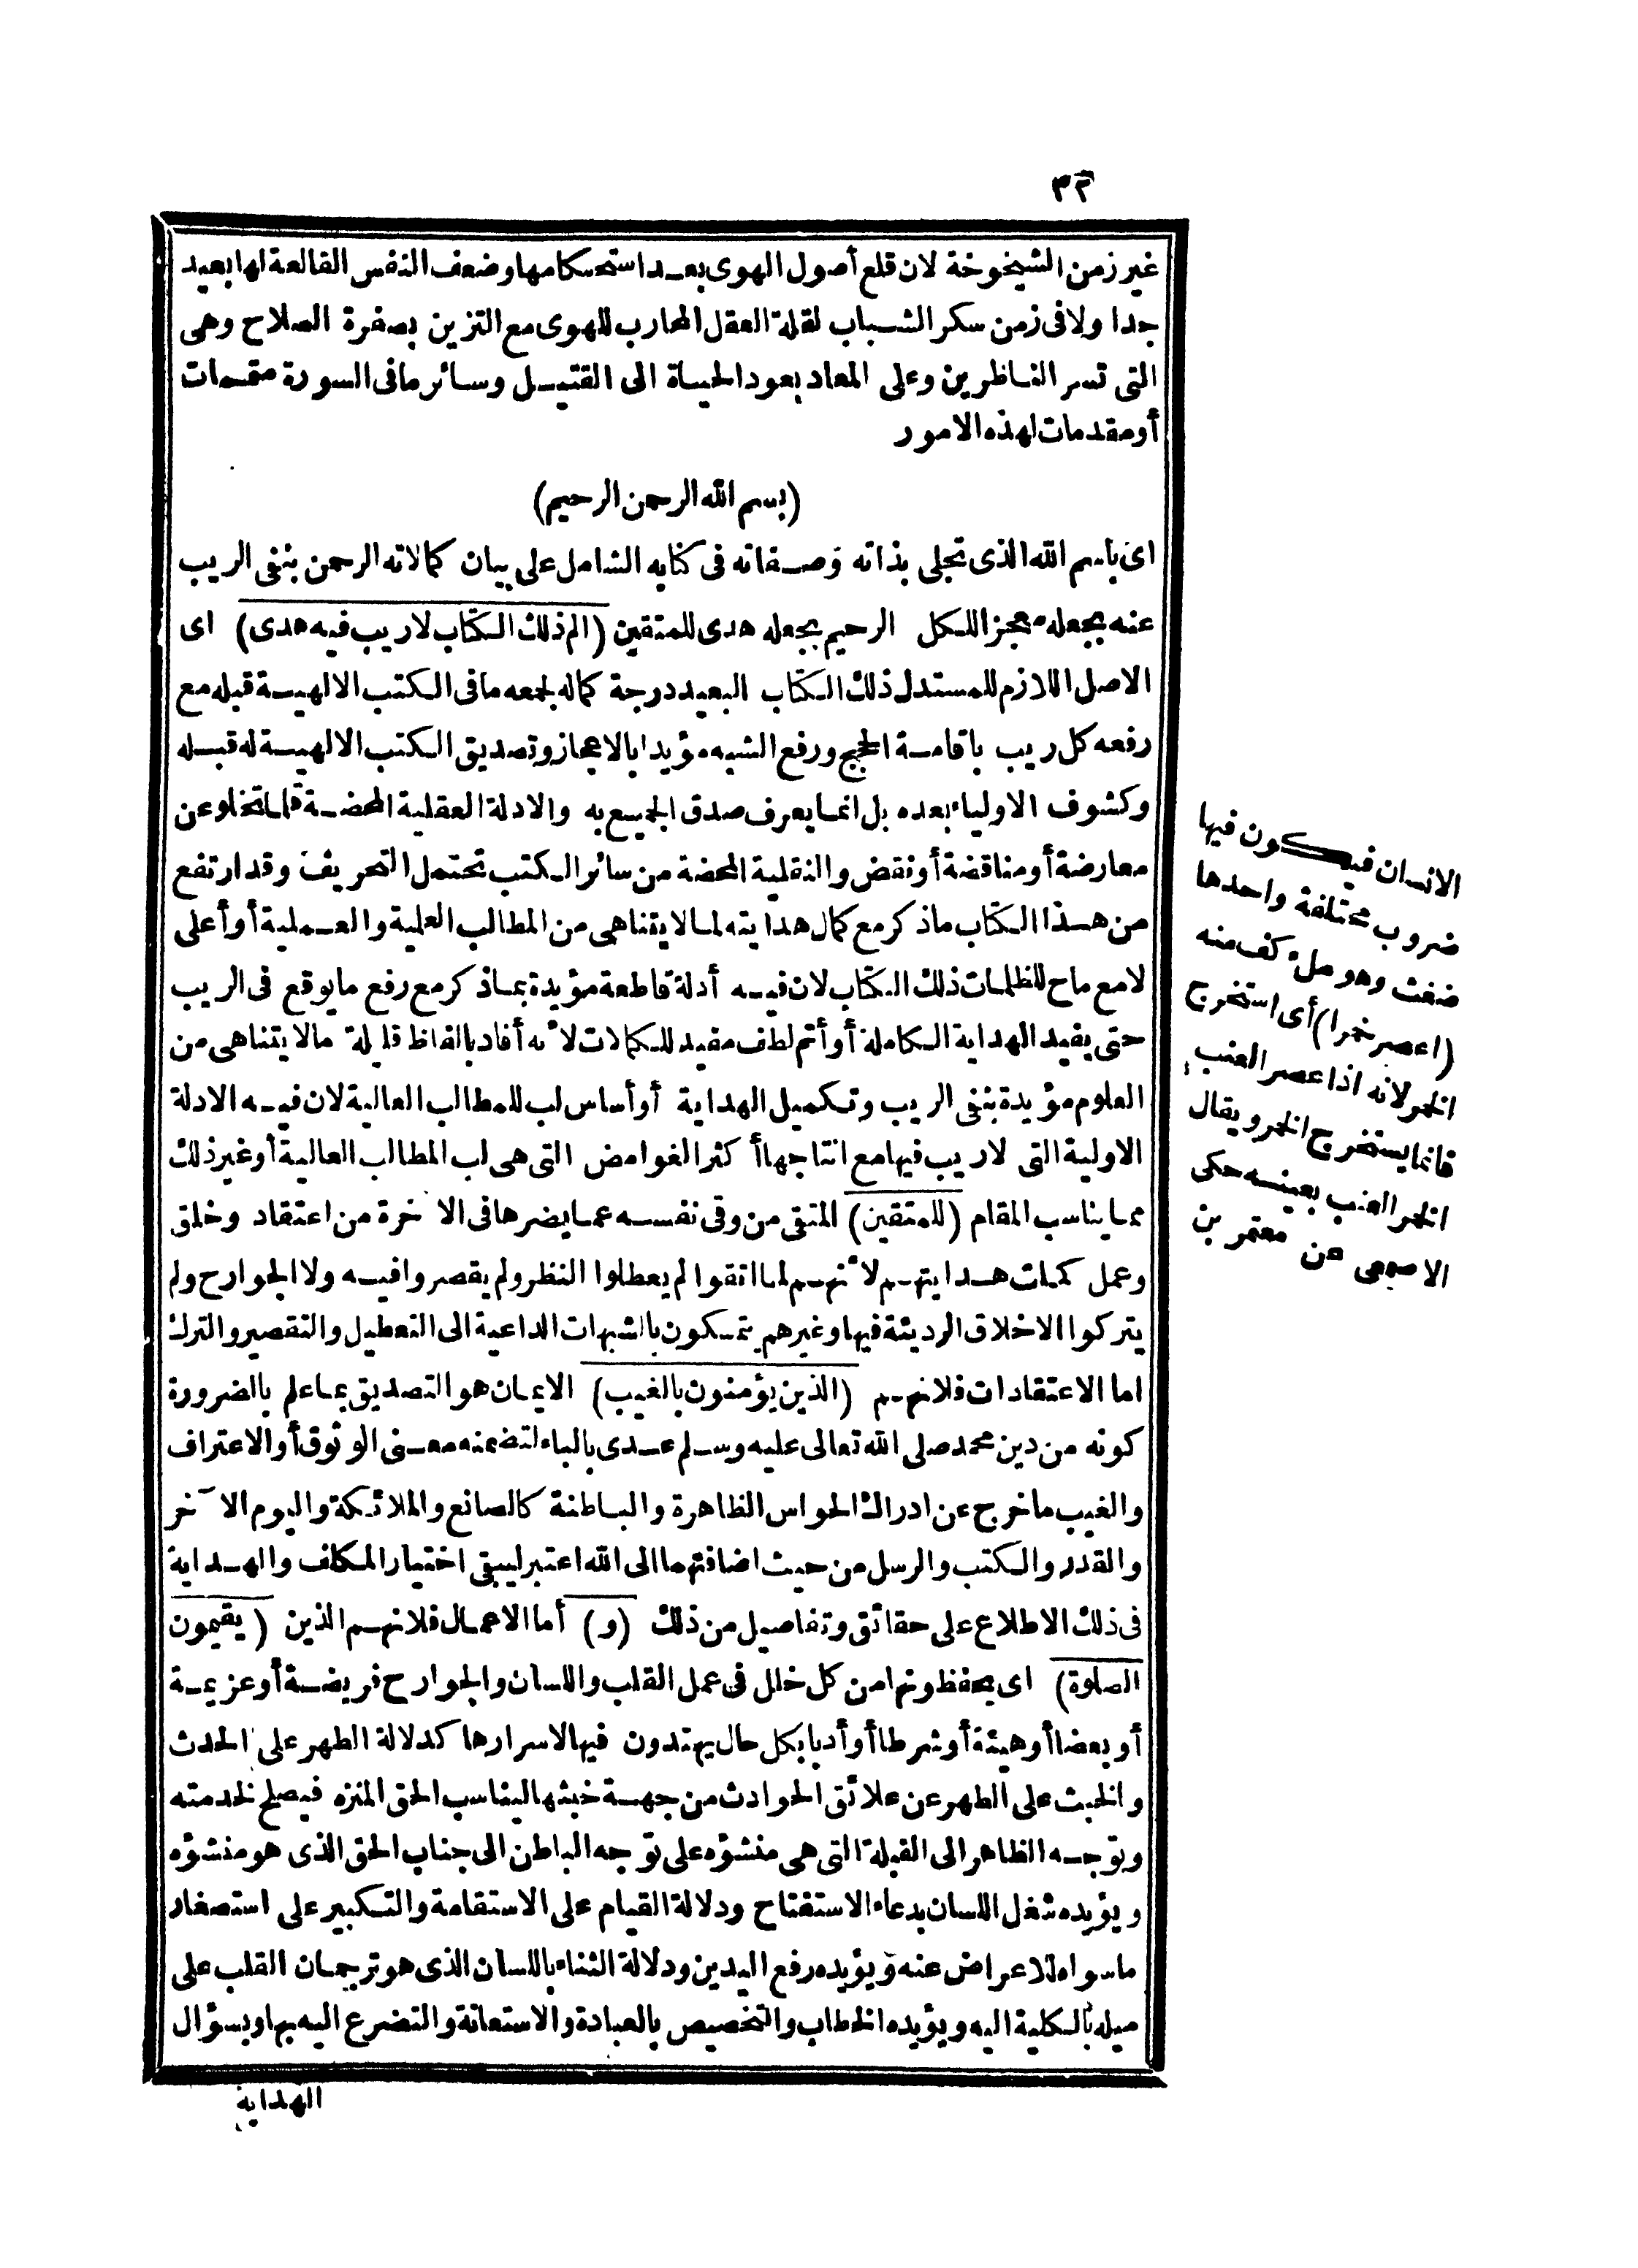 ٣٢
غير زمن الشيخوخة لان قلع أصول الهوى بعد استحكامها وضعف النفس القالعة لها بعيد
جدا ولا فى زمن سكر الشباب لقلة العقل المحارب للهوى مع التزين بصفرة الصلاح وهى
التى تسر الناظرين وعلى المعاد بعود الحياة الى القتيل وسائر ما فى السورة متممات
أو مقدمات لهذه الامور
(بسم الله الرحمن الرحيم)
اى باسم الله الذى تجلى بذاته وصفاته فى كتابه الشامل على بيان كمالاته الرحمن بنفى الريب
عنه بجعله معجزا للكل الرحيم بجعله هدى للمتقين (الم ذلك الكتاب لاريب فيه هدى) اى
الاصل اللازم للمستدل ذلك الكتاب البعيد درجة كماله لجمعه ما فى الكتب الالهية قبله مع
رفعه كل ريب باقامة الحجج ورفع الشبه مؤيدا بالاعجاز وتصديق الكتب الالهية له قبله
وكشوف الاولياء بعده بل انما يعرف صدق الجميع به والادلة العقلية المحضة قلما تخلو عن
معارضة أو مناقضة أو نقض والنقلية المحضة من سائر الكتب تحتمل التحريف وقد ارتفع
من هذا الكتاب ماذكر مع كمال هدايته لما لا يتناهى من المطالب العلية والعملية أو أعلى
لامع ماح للظلمات ذلك الكتاب لان فيه أدلة قاطعة مؤيدة بماذكر مع رفع مايوقع فى الريب
حتى يفيد الهداية الكاملة أو أتم لطف مفيد للكمالات لأنه أفاد بالفاظ قليلة مالا يتناهى من
العلوم مؤيدة بنفى الريب وتكميل الهداية أو أساس لب للمطالب العالية لان فيه الادلة
الاولية التى لاريب فيها مع انتاجها أكثر الغوامض التى هى لب المطالب العالية أو غير ذلك
مما يناسب المقام (للمتقين) المتقى من وقى نفسه عما يضرها فى الآخرة من اعتقاد وخلق
وعمل كملت هدايتهم لأنهم لما اتقوا لم يعطلوا النظر ولم يقصروا فيه ولا الجوارح ولم
يتركوا الاخلاق الرديئة فيها وغيرهم يتمسكون بالشبهات الداعية الى التعطيل والتقصير والترك
اما الاعتقادات فلانهم (الذين يؤمنون بالغيب) الايمان هو التصديق بما علم بالضرورة
كونه من دين محمد صلى الله تعالى عليه وسلم عدى بالباء لتضمنه معنى الوثوق أو الاعتراف
والغيب ما خرج عن ادراك الحواس الظاهرة والباطنة كالصانع والملائكة واليوم الآخر
والقدر والكتب والرسل من حيث اضافتهما الى الله اعتبر ليبقى اختيار المكلف والهداية
فى ذلك الاطلاع على حقائق وتفاصيل من ذلك (و) أما الاعمال فلانهم الذين (يقيمون
الصلوة) اى يحفظونها من كل خلل فى عمل القلب واللسان والجوارح فريضة أو عزيمة
أو بعضا أو هيئة أو شرطا أو أدبا بكل حال يهتدون فيها لاسرارها كدلالة الطهر على الحدث
والخبث على الطهر عن علائق الحوادث من جهة خبثها ليناسب الحق المنزه فيصلح لخدمته
وتوجه الظاهر الى القبلة التى هى منشؤه على توجه الباطن الى جناب الحق الذى هو منشؤه
ويؤيده شغل اللسان بدعاء الاستفتاح ودلالة القيام على الاستقامة والتكبير على استصغار
ماسواه للاعراض عنه ويؤيده رفع اليدين ودلالة الثناء باللسان الذى هو ترجمان القلب على
ميله بالكلية اليه ويؤيده الخطاب والتخصيص بالعبادة والاستعانة والتضرع اليه بها وبسؤال
الهداية
الانسان فيكون فيها
ضروب مختلفة واحدها
ضغث وهو ملء كف منه
(اعصر خمرا) أى استخرج
الخمر لانه اذا عصر العنب
فانما يستخرج الخمر ويقال
الخمر العنب بعينه حكى
الاصمعى عن معتمر بن